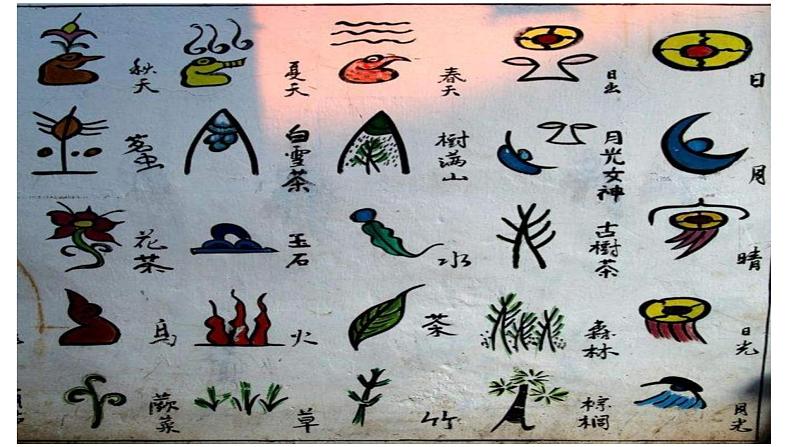 日
月
晴
日光
月光
日出
月光女神
古樹茶
森林
棕榈
春天
樹满山
水
茶
竹
夏天
白雪茶
玉石
火
草
秋天
花茶
鸟
蕨菜